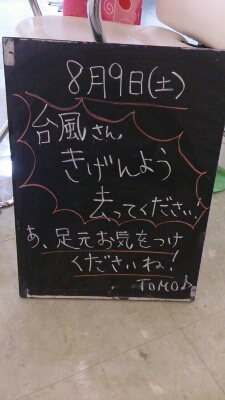 8月9日(土)
台風さん。
きげんよう
去ってください。
あ、足元お気をつけ
くださいね!
TOMO♪